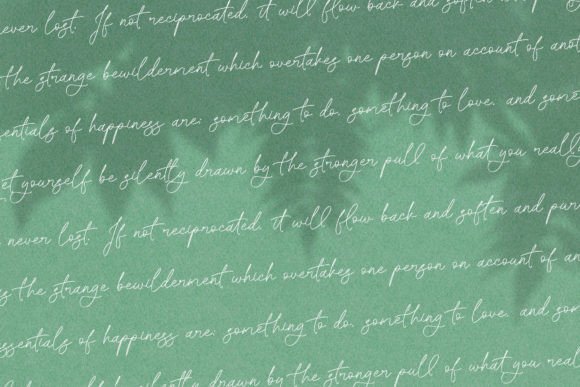 never lost. If not reciprocated, it will flow back and soften
the strange bewilderment which overtakes one person on account of
of happiness are: something to do, something to love, and
yourself be silently drawn by the stronger pull of what you really
never lost. If not reciprocated, it will flow back and soften and
the strange bewilderment which overtakes one person on account of
essentials of happiness are: something to do, something to love, and
yourself be silently drawn by the stronger pull of what you